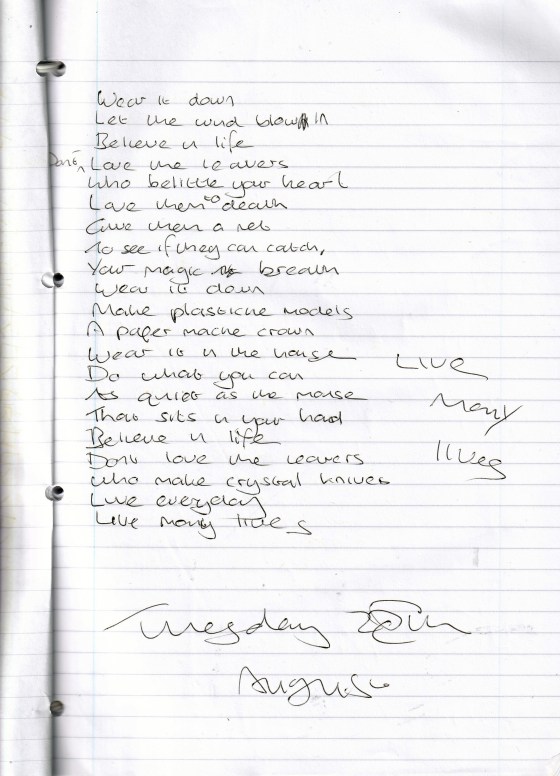 Wear it down
Let the wind blow in
Believe in life
Dont Love the leavers
Who belittle your heart
Love them to death
Give them a net
To see if they can catch,
Your magic breath
Wear it down
Make plasticine models
A paper mache crown
Wear it in the house
Do what you can
As quiet as the mouse
That sits in your hand
Believe in life
Dont love the leavers
Who make crystal knives
Live everyday
Live many lives
Live
Many
lives
Tuesday
August